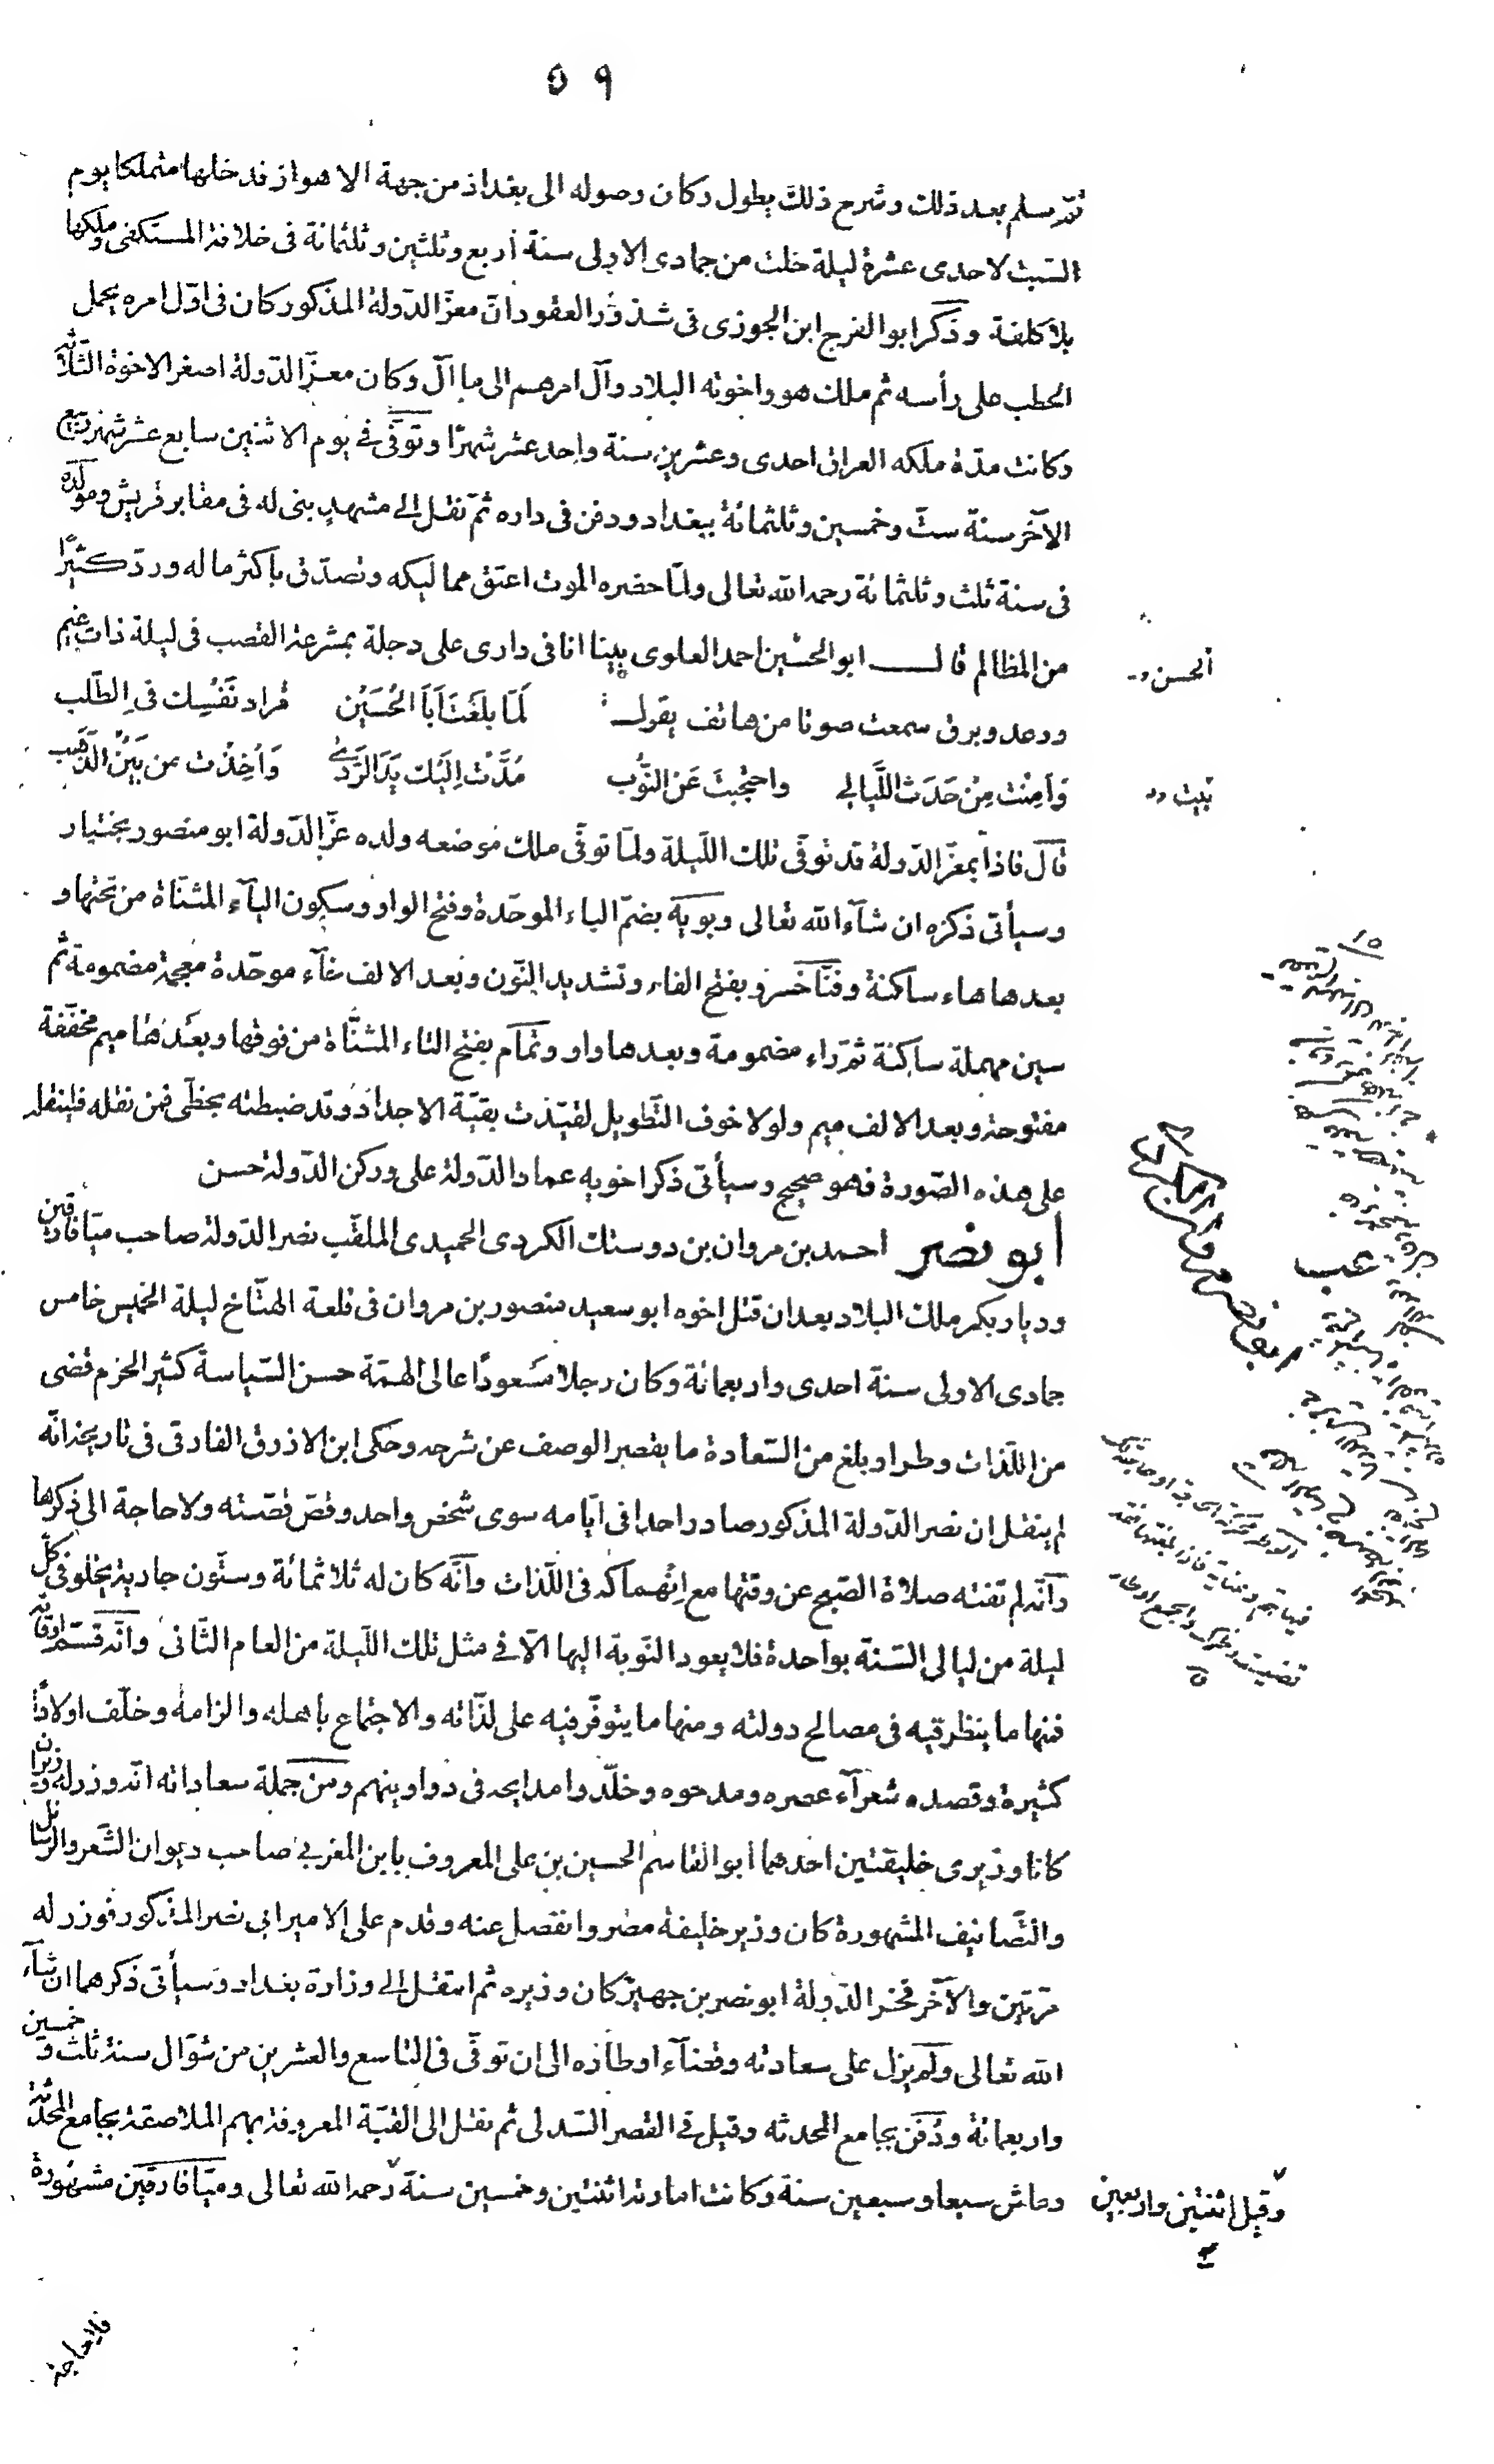 ٥٩
ثم سلم بعد ذلك وشرح ذلك يطول وكان وصوله الى بغداد من جهة الاهواز فدخلها متملكا يوم
السّبت لاحدى عشرة ليلة خلت من جمادى الاولى سنة أربع وثلثين وثلثمائة فى خلافة المستكفى وملكها
بلا كلفة وذكر ابو الفرج ابن الجوزى فى شذور العقود انّ معزّ الدّولة المذكور كان فى اوّل امره يحمل
الحطب على رأسه ثم ملك هو واخوته البلاد وآل امرهم الى ما آل وكان معزّ الدّولة اصغر الاخوة الثّلاثة
وكانت مدّة ملكه العراق احدى وعشرين سنة واحد عشر شهرًا وتوفّى فى يوم الاثنين سابع عشر شهر ربيع
الآخر سنة ستّ وخمسين وثلثمائة ببغداد ودفن فى داره ثمّ نقل الى مشهد بنى له فى مقابر قريش ومولده
فى سنة ثلث وثلثمائة رحمه الله تعالى ولمّا حضره الموت اعتق مماليكه وتصدّق باكثر ماله وردّ كثيرًا
من المظالم قال ابو الحسين احمد العلوى بينا انا فى دارى على دجلة بمشرعة القصب فى ليلة ذات غيم
ورعد وبرق سمعت صوتا من هاتف يقول لَمّا بلغتَ أبَا الحُسَيْن مُراد نَفْسِك فى الطّلب
وَأمِنْتَ مِنْ حَدَث اللَّيَالِى واحتجبتَ عَن النّوُب مُدَّتْ اِلَيْك يَدَ الرَّدى وَاُخِذْت من بَيْن الذّهب
قال فاذا بمعزّ الدّولة قد توفّى تلك اللّيلة ولمّا توفّى ملك موضعه ولده عزّ الدّولة ابو منصور بختيار
وسيأتى ذكره ان شآء الله تعالى وبويه بضمّ الباء الموحّدة وفتح الواو وسكون اليآء المثنّاة من تحتها و
بعدها هاء ساكنة وفنّاخسرو بفتح الفاء وتشديد النّون وبعد الالف خآء موحّدة معجمة مضمومة ثم
سين مهملة ساكنة ثم راء مضمومة وبعدها واو وتمام بفتح التاء المثنّاة من فوقها وبعدها ميم مخفّفة
مفتوحة وبعد الالف ميم ولولا خوف التّطويل لقيّدت بقيّة الاجداد وقد ضبطته بخطّى فمن نقله فلينقله
على هذه الصّورة فهو صحيح وسيأتى ذكر اخويه عماد الدّولة على وركن الدّولة حسن
أبو نصر احمد بن مروان بن دوستك الكردى الحميدى الملقّب نصر الدّولة صاحب ميّافارقين
وديار بكر ملك البلاد بعد ان قتل اخوه ابو سعيد منصور بن مروان فى قلعة الهتّاخ ليلة الخميس خامس
جمادى الاولى سنة احدى واربعمائة وكان رجلا مسعودًا عالى الهمّة حسن السّياسة كثير الحزم قضى
من اللّذات وطرا وبلغ من السّعادة ما يقصر الوصف عن شرحه وحكى ابن الازرق الفارقى فى تاريخه انّه
لم ينقل ان نصر الدّولة المذكور صادر احدا فى ايّامه سوى شخص واحد وقصّ قصّته ولا حاجة الى ذكرها
وانّه لم تفته صلاة الصّبح عن وقتها مع انهماكه فى اللّذات وانّه كان له ثلاثمائة وستّون جارية يخلو فى كلّ
ليلة من ليالى السّنة بواحدة فلا يعود النّوبة اليها الّا فى مثل تلك اللّيلة من العام الثّانى وانّه قسّم اوقاته
فمنها ما ينظر فيه فى مصالح دولته ومنها ما يتوفّر فيه على لذّاته والاجتماع باهله والزامه وخلّف اولادًا
كثيرة وقصده شعرآء عصره ومدحوه وخلّدوا مدايحه فى دواوينهم ومن جملة سعاداته انّه وزر له وزيران
كانا وزيرى خليفتين احدهما أبو القاسم الحسين بن على المعروف بابن المغربى صاحب ديوان الشّعر والرّسائل
والتّصانيف المشهورة كان وزير خليفة مصر وانفصل عنه وقدم على الامير ابى نصر المذكور فوزر له
مرّتين والآخر فخر الدّولة ابو نصر بن جهير كان وزيره ثم انتقل الى وزارة بغداد وسيأتى ذكرهما ان شآء
الله تعالى ولم يزل على سعادته وقضآء اوطاره الى ان توفّى فى التاسع والعشرين من شوّال سنة ثلث وخمسين
واربعمائة ودُفن بجامع المحدثه وقيل فى القصر السّدلى ثم نقل الى القبّة المعروفة بهم الملاصقة بجامع المحدثة
وعاش سبعا وسبعين سنة وكانت امارته اثنتين وخمسين سنة رحمه الله تعالى وميّافارقين مشهورة
الحسن
بيت
عب
ابو نصر مروان الكردى
وقيل اثنتين واربعين
فلا حاجة